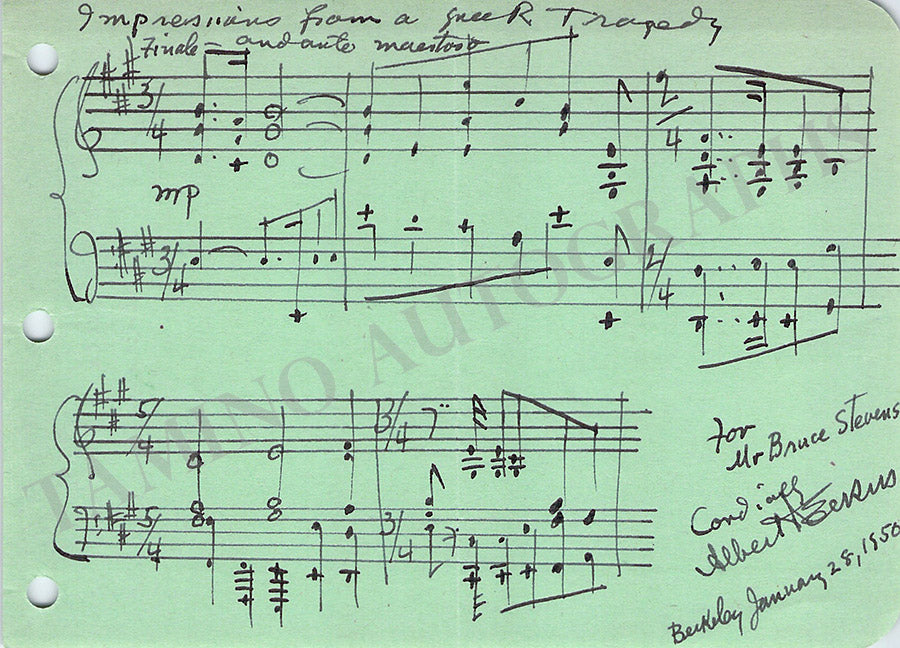 Impressions from a greek Tragedy
Finale - andante maestoso
3/4
2/4
mp
3/4
2/4
5/4
3/4
5/4
3/4
for
Mr Bruce Stevens
Cordially
Albert Elkus
Berkeley January 28, 1950
TAMINO AUTOGRAPHS